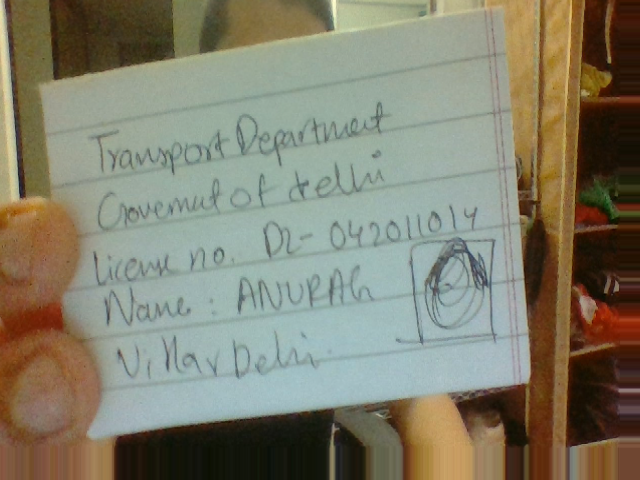 Transport Department
Government of delhi
License no. DL- 042011014
Name : ANURAG
Delhi